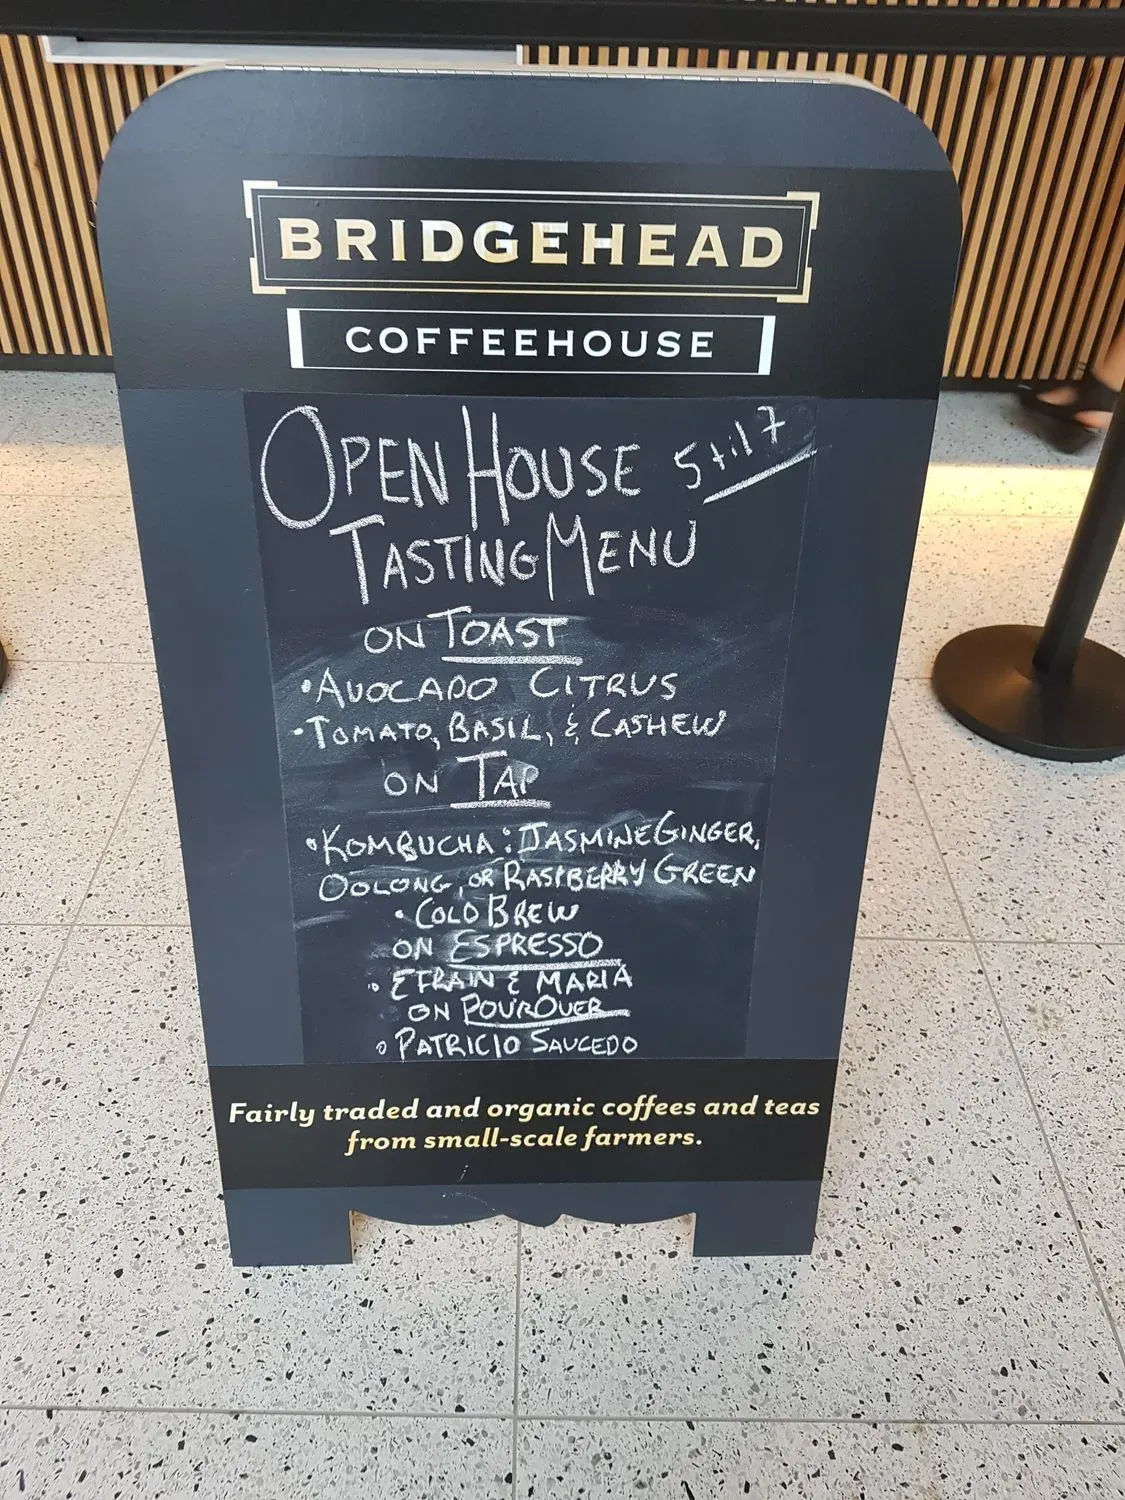 BRIDGEHEAD
COFFEEHOUSE
OPEN HOUSE 5 til 7
TASTING MENU
ON TOAST
•AVOCADO CITRUS
•TOMATO, BASIL, & CASHEW
ON TAP
•KOMBUCHA: JASMINE GINGER,
OOLONG, OR RASPBERRY GREEN
•COLD BREW
ON ESPRESSO
•EFRAIN & MARIA
ON POUROVER
•PATRICIO SAUCEDO
Fairly traded and organic coffees and teas
from small-scale farmers.